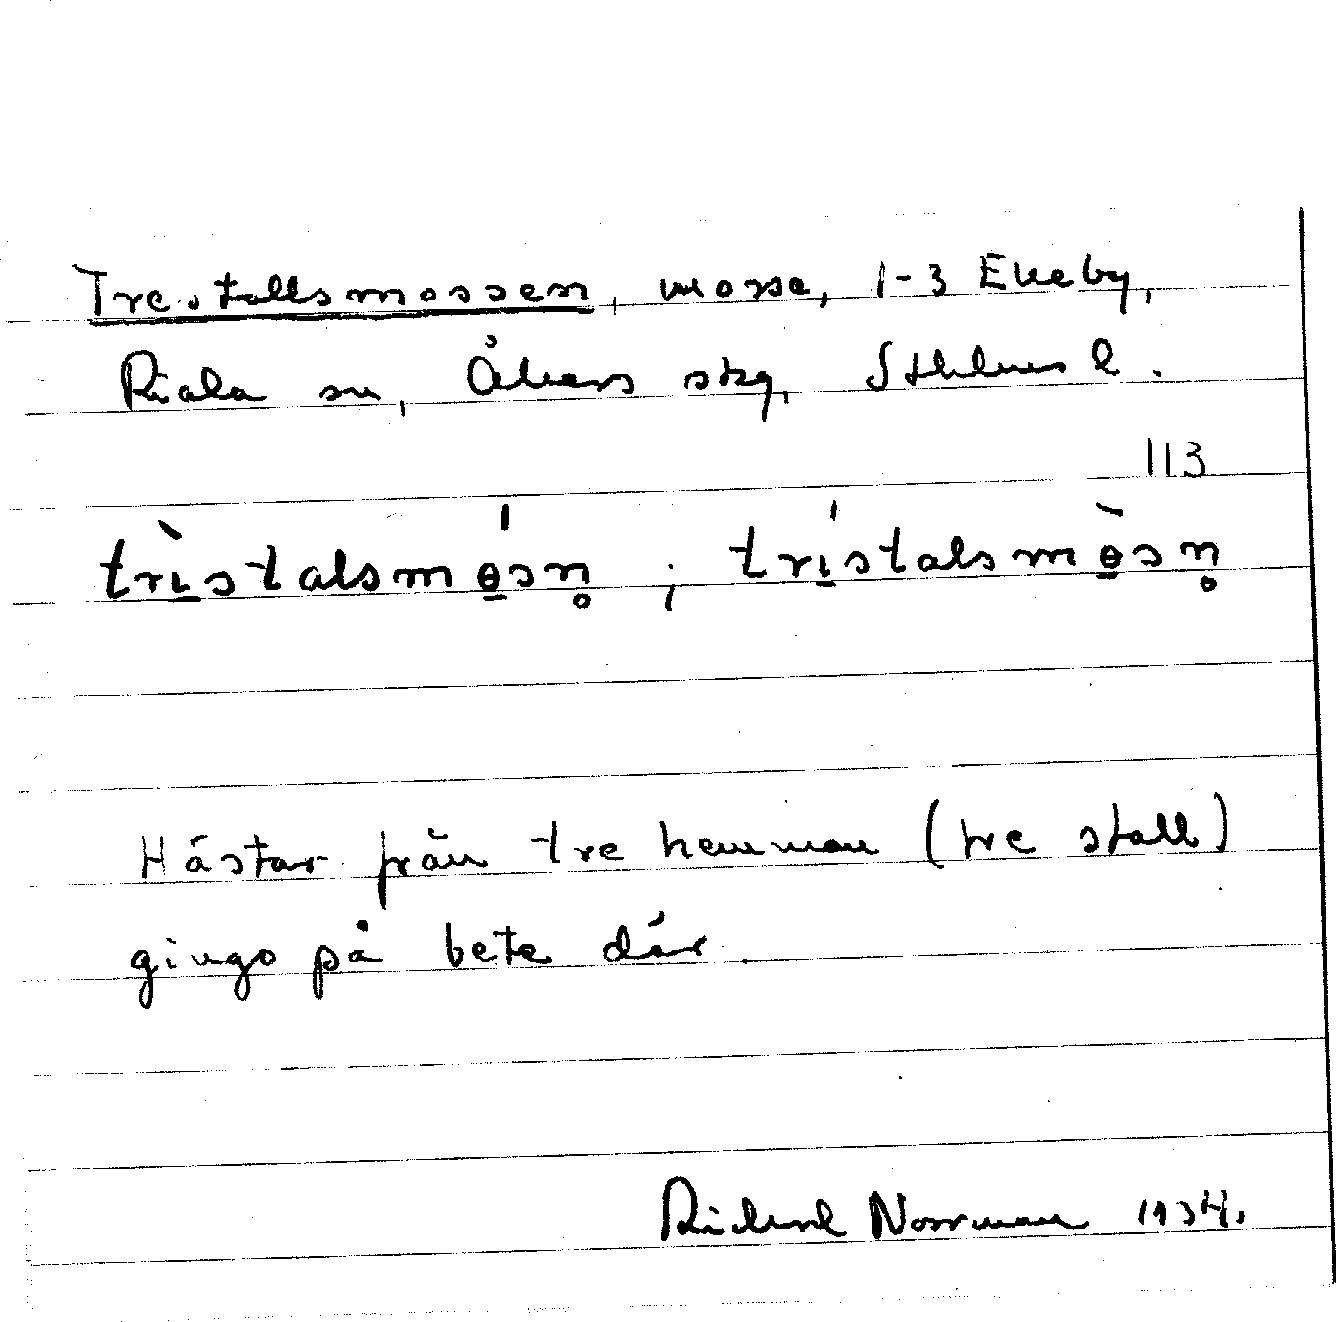 Trestallsmossen, mosse, 1-3 Ekeby,
Riala sn, Åkers skg, Sthlms l.
113
trìstalsmɵ́sn̥ ; trístalsmɵ̀sn̥
Hästar från tre hemman (tre stall)
gingo på bete där.
Richard Norrman 1934.